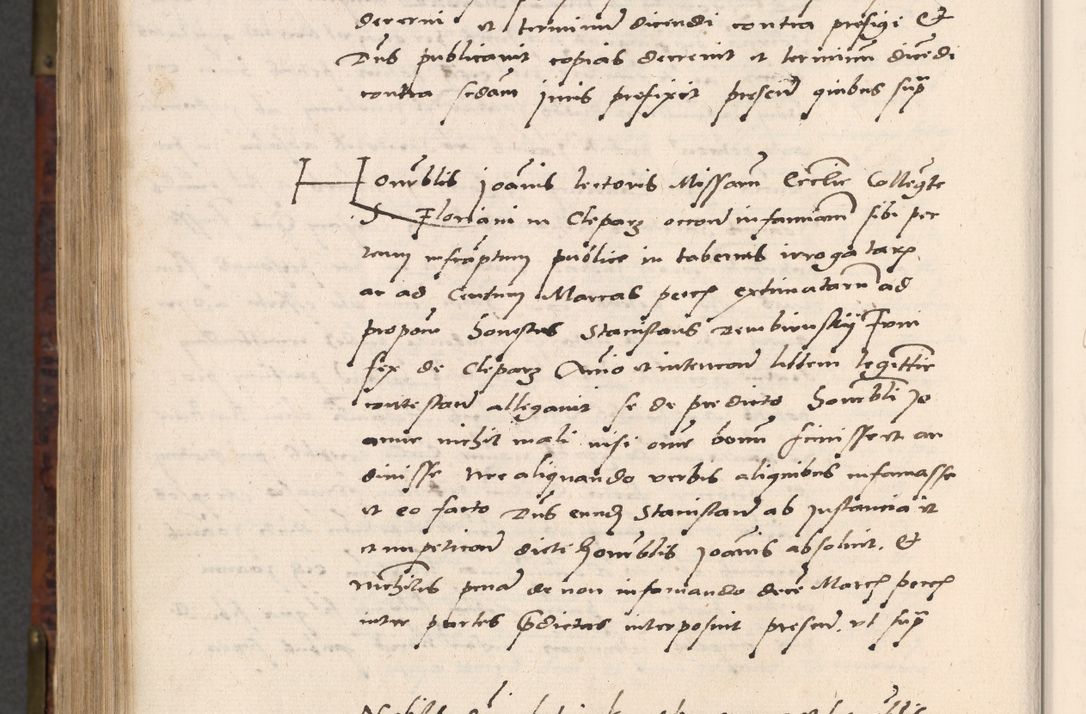 decerni et terminum dicendi contra prefigi Et
Dns publicavit copias decrevit et terminum dicendi
contra scdam Juris prefixit presen quibus supra
Honorablis Joannis lectoris Missarum Ecclie Collegte
S Floriani in Clepardz occon infamiam sibi per
reum infrascriptum publice in tabernis irrogatarz
ac ad Centum Marcas pecc extimatarum ad
propom honestus Stanislaus Dembinskij
fex de Clepardz Animo et intencon litem legittie
contestan allegavit se de predicto honorabli Jo
anne nichil mali nisi omne bonum scivisse et au
divisse Nec aliquando verbis aliquibus infamasse
et eo facto Dns eundem Stanislaum ab Instancia et
et impeticon dicte Honorablis Joannis absolvit. Et
nichilominus penam de non infamando decem Marcz pecc
inter partes predictas interposuit presen. ut supra